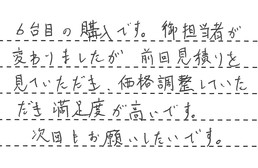 6台目の購入です。御担当者が
変わりましたが前回見積りを
見ていただき、価格調整していた
だき満足度が高いです。
次回もお願いしたいです。